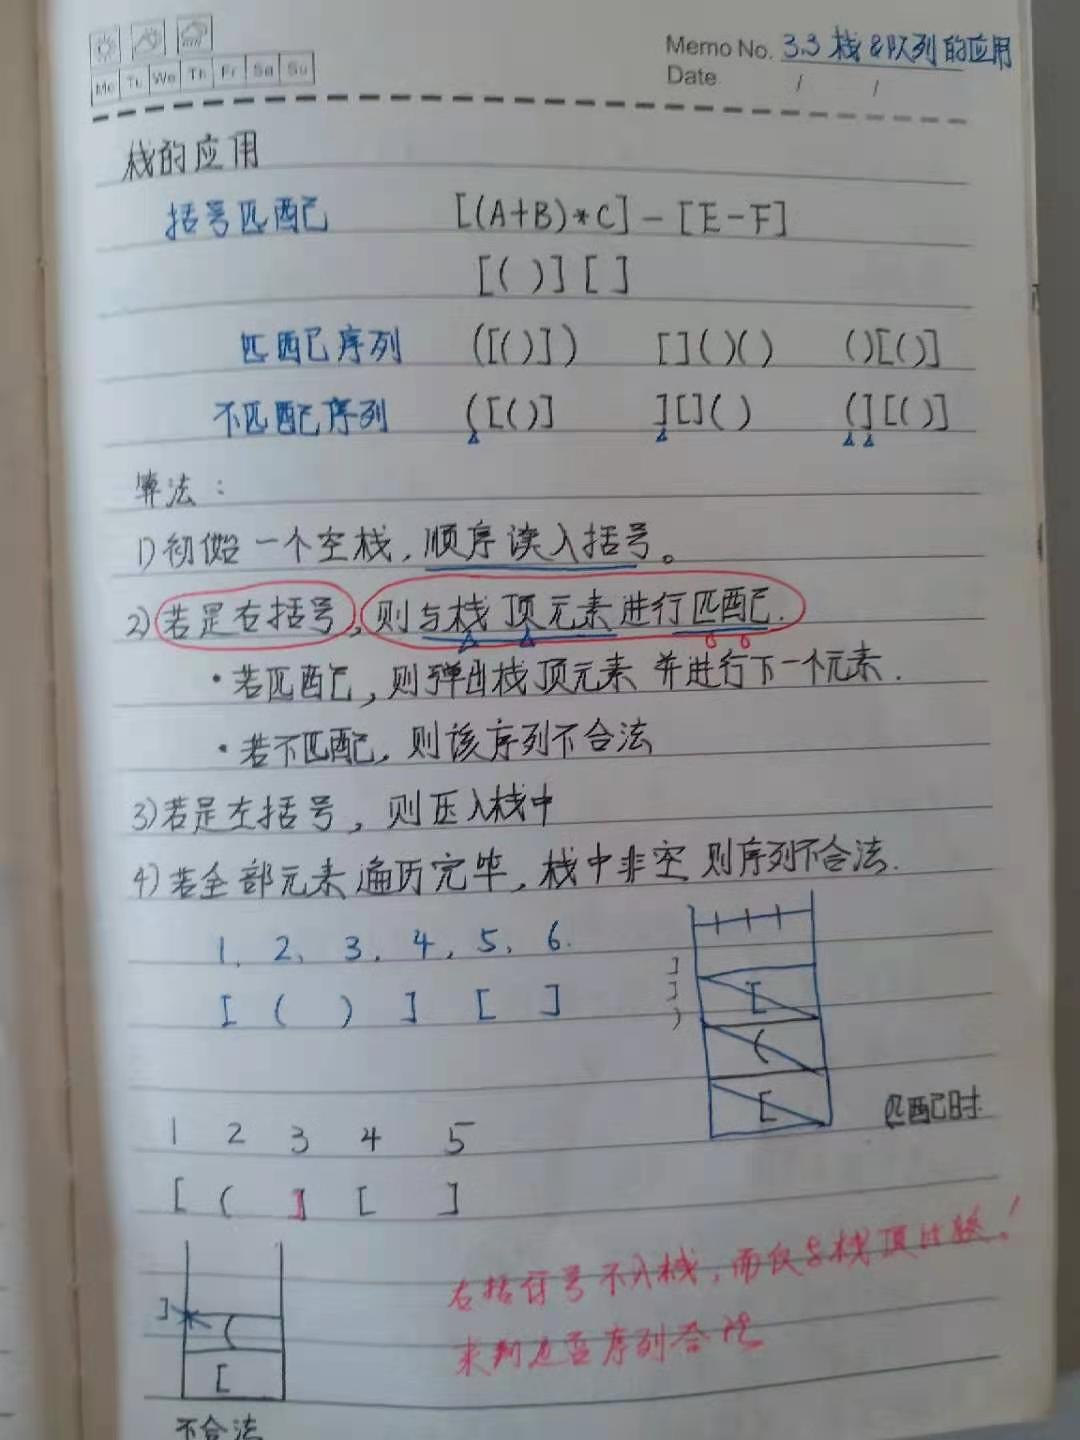 Memo No. 3.3 栈&队列的应用
Mo Tu We Th Fr Sa Su
Date / /
栈的应用
括号匹配 [(A+B)*C]-[E-F]
[()][]
匹配序列 ([()]) []()() ()[()]
不匹配序列 ([()] ][]() (][()]
算法:
1)初始一个空栈,顺序读入括号。
2)若是右括号,则与栈顶元素进行匹配.
·若匹配,则弹出栈顶元素 并进行下一个元素.
·若不匹配,则该序列不合法
3)若是左括号,则压入栈中
4)若全部元素遍历完毕,栈中非空 则序列不合法.
1. 2. 3. 4. 5. 6.
[ ( ) ] [ ]
]
]
)
[
(
[
匹配时
1 2 3 4 5
[ ( ] [ ]
]
(
[
不合法
右括符号不入栈,而仅与栈顶比较!
来判定序列合